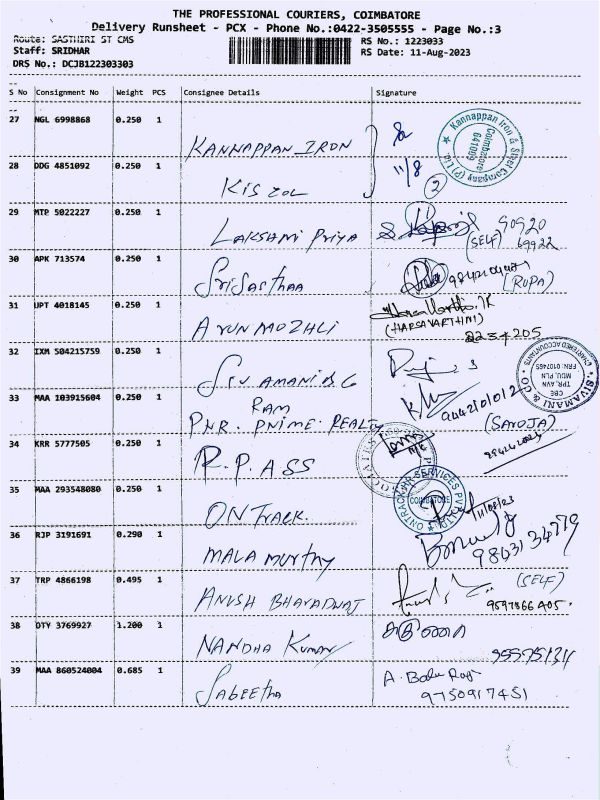 THE PROFESSIONAL COURIERS, COIMBATORE
Delivery Runsheet - PCX - Phone No.:0422-3505555 - Page No.:3
Route: SASTHIRI ST CMS RS No.: 1223033
Staff: SRIDHAR RS Date: 11-Aug-2023
DRS No.: DCJB122303303
S No Consignment No Weight PCS Consignee Details Signature
27 NGL 6998868 0.250 1 KANNAPPAN IRON
Kannappan Iron & Steel Company (P) Ltd. Coimbatore 641009
11/8
28 DDG 4851092 0.250 1 KISZOL 2
29 MTP 5022227 0.250 1 LAKSHMI PRIYA (SELF) 90920 69922
30 APK 713574 0.250 1 Sri Sasthaa (RUPA)
31 UPT 4018145 0.250 1 ARUN MOZHLI (HARSAVARTHINI)
32 IXM 504215759 0.250 1
SIVAMANI & CO CHARTERED ACCOUNTANTS CBE TPR, AVN MDU, PLN FRN: 010746S
33 MAA 103915604 0.250 1 RAM PNR. PRIME REALTY (SAROJA)
34 KRR 5777505 0.250 1 R.P. ASS
35 MAA 293548080 0.250 1 ONTRACK.
ONTRACK HR SERVICES PVT LTD COIMBATORE
11/08/23
36 RJP 3191691 0.290 1 MALA MURTHY
37 TRP 4866198 0.495 1 ANUSH BHARADWAJ (SELF)
38 OTY 3769927 1.200 1 NANDHA KUMAR
39 MAA 860524004 0.685 1 Sabeetha A. Balu Raj
9750917451